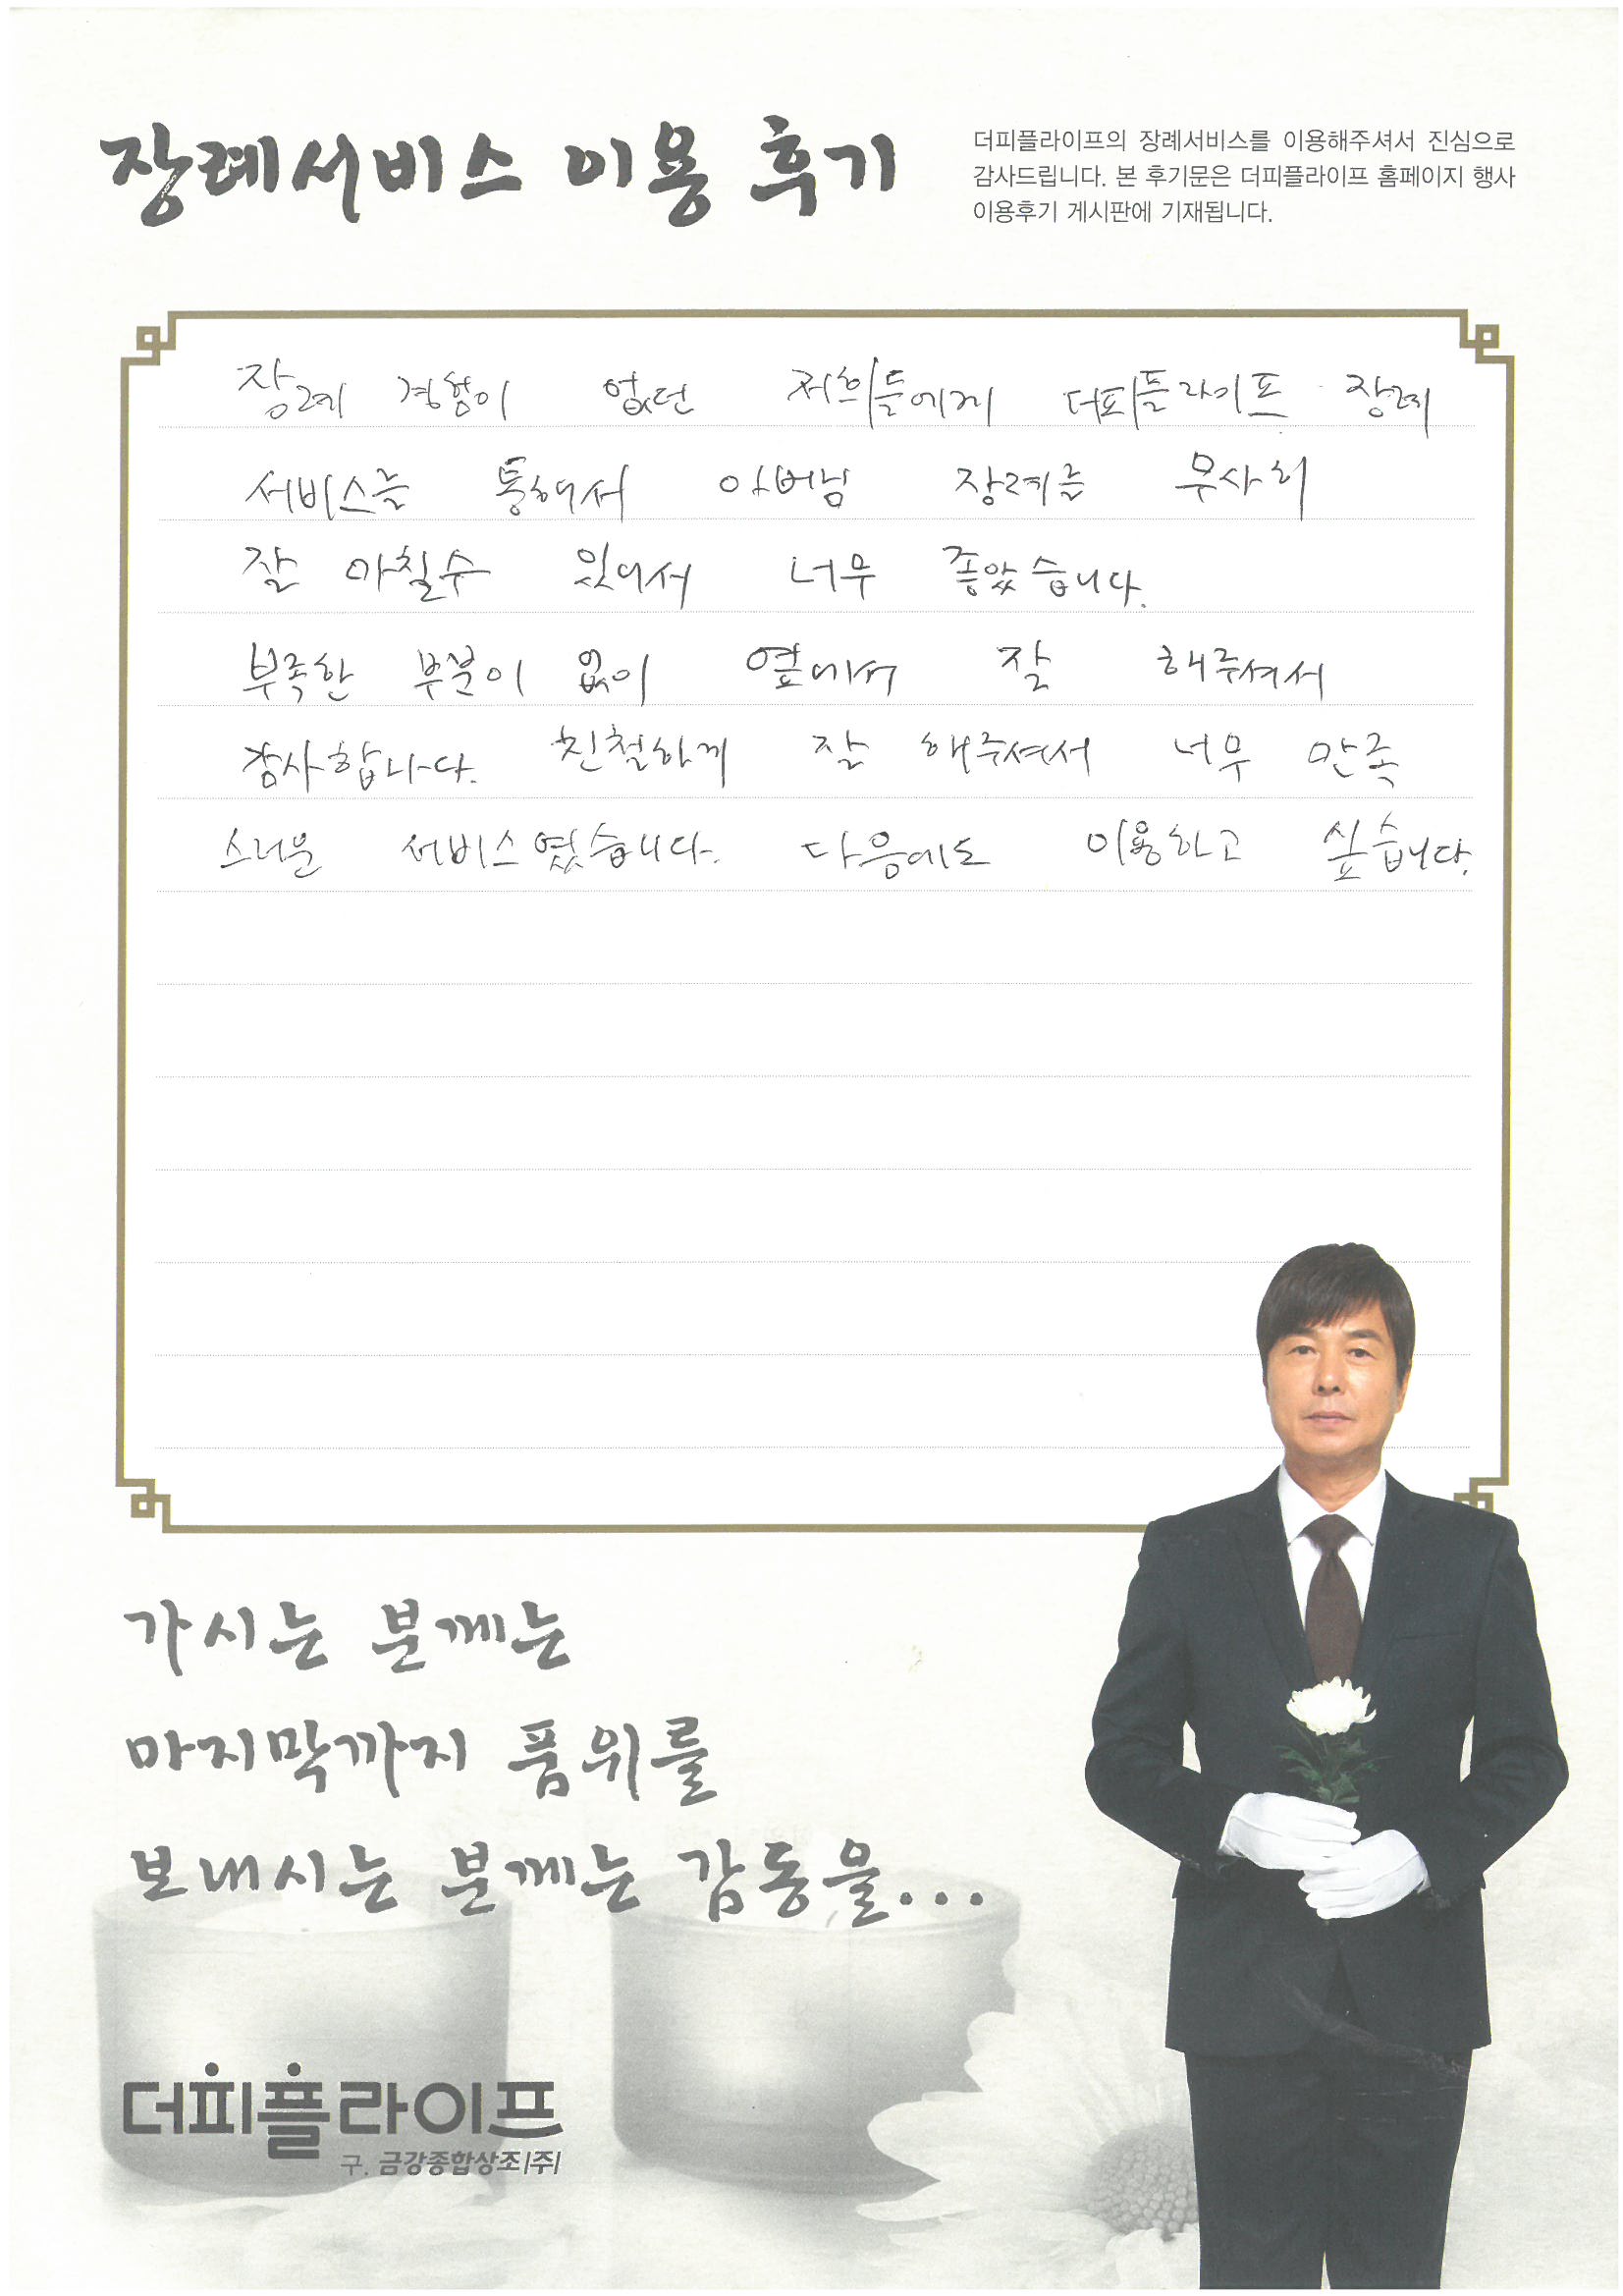 장례서비스 이용 후기
더피플라이프의 장례서비스를 이용해주셔서 진심으로
감사드립니다. 본 후기문은 더피플라이프 홈페이지 행사
이용후기 게시판에 기재됩니다.
장례 경험이 없던 저희들에게 더피플라이프 장례
서비스를 통해서 아버님 장례를 무사히
잘 마칠수 있어서 너무 좋았습니다.
부족한 부분이 없이 옆에서 잘 해주셔서
감사합니다. 친철하게 잘 해주셔서 너무 만족
스러운 서비스였습니다. 다음에도 이용하고 싶습니다.
가시는 분께는
마지막까지 품위를
보내시는 분께는 감동을...
더피플라이프
구. 금강종합상조(주)